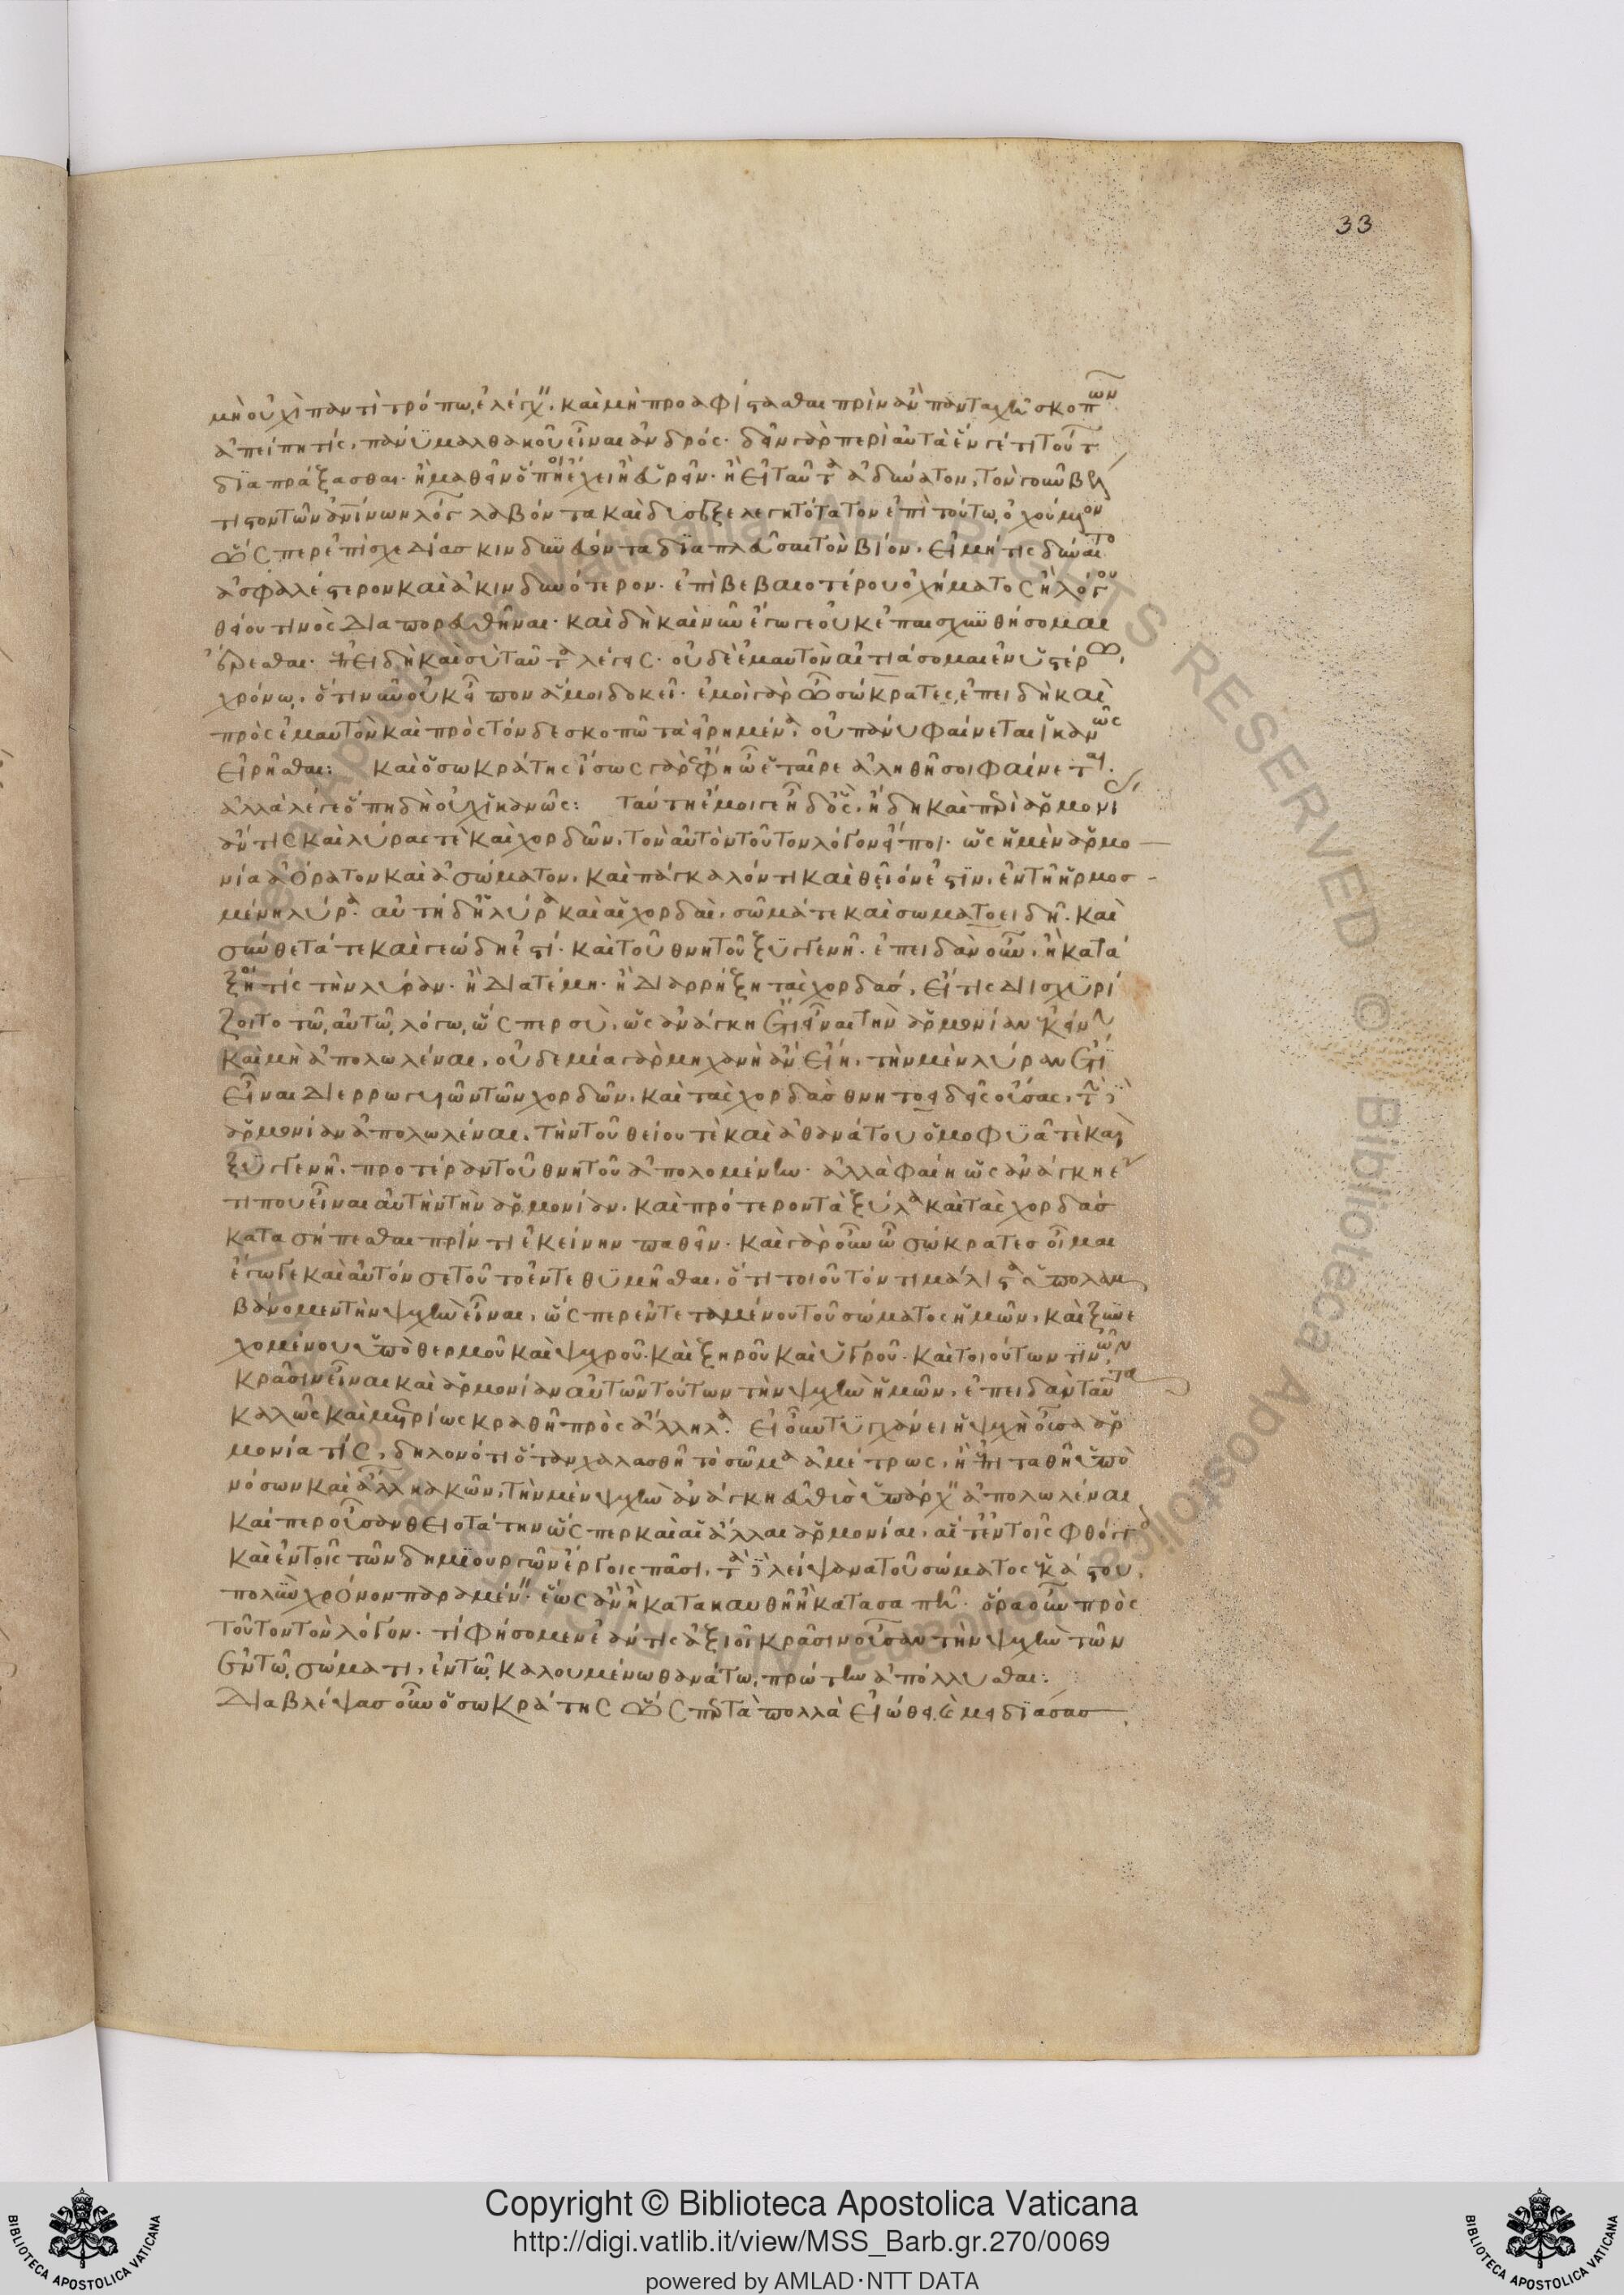 33
μὴ οὐχὶ παντὶ τρόπῳ ἐλέγχειν. καὶ μὴ προαφίστασθαι πρὶν ἂν πανταχῇ σκοπῶν
ἀπείπῃ τίς. πάνυ μαλθακοῦ εἶναι ἀνδρός. δεῖν γὰρ περὶ αὐτὰ ἕν γέ τι τούτων
διαπράξασθαι. ἢ μαθεῖν ὅπῃ ἔχει ἢ εὑρεῖν. ἢ εἰ ταῦτα ἀδύνατον. τὸν γοῦν βέλ
τιστον τῶν ἀνθρωπίνων λόγων λαβόντα καὶ δυσεξελεγκτότατον ἐπὶ τούτῳ ὀχούμενον
ὥσπερ ἐπὶ σχεδίας κινδυνεύοντα διαπλεῦσαι τὸν βίον. εἰ μή τις δύναιτο
ἀσφαλέστερον καὶ ἀκινδυνότερον. ἐπὶ βεβαιοτέρου ὀχήματος ἢ λόγου
θείου τινὸς διαπορευθῆναι. καὶ δὴ καὶ νῦν ἔγωγε οὐκ ἐπαισχυνθήσομαι
ἐρέσθαι. ἐπειδὴ καὶ σὺ ταῦτα λέγεις. οὐδὲ ἐμαυτὸν αἰτιάσομαι ἐν ὑστέρῳ
χρόνῳ, ὅτι νῦν οὐκ εἶπον ἅ μοι δοκεῖ. ἐμοὶ γὰρ ὦ σώκρατες, ἐπειδὴ καὶ
πρὸς ἐμαυτὸν καὶ πρὸς τόνδε σκοπῶ τὰ εἰρημένα, οὐ πάνυ φαίνεται ἱκανῶς
εἰρῆσθαι: καὶ ὁ σωκράτης ἴσως γὰρ ἔφη ὦ ἑταῖρε ἀληθῆ σοι φαίνεται.
ἀλλὰ λέγε ὅπῃ δὴ οὐχ ἱκανῶς: ταύτῃ ἔμοιγε ἦ δὸς, ᾗ δὴ καὶ περὶ ἁρμονί
ας ἄν τις καὶ λύρας τὲ καὶ χορδῶν. τὸν αὐτὸν τοῦτον λόγον εἴποι. ὡς ἡ μὲν ἁρμο
νία ἀόρατον καὶ ἀσώματον. καὶ πάγκαλόν τι καὶ θεῖόν ἐστιν. ἐν τῇ ἡρμοσ
μένῃ λύρᾳ. αὐτὴ δὴ λύρα καὶ αἱ χορδαὶ, σῶμά τε καὶ σωματοειδῆ. καὶ
σύνθετά τε καὶ γεώδη ἐστί. καὶ τοῦ θνητοῦ ξυγγενῆ. ἐπειδὰν οὖν, ἢ κατά
ξῃ τίς τὴν λύραν. ἢ διατέμῃ. ἢ διαρρήξῃ τὰς χορδάς, εἴ τις διισχυρί
ζοιτο τῷ αὐτῷ λόγῳ, ὥσπερ σὺ. ὡς ἀνάγκη ἔτι εἶναι τὴν ἁρμονίαν ἐκείνην
καὶ μὴ ἀπολωλέναι. οὐδεμία γὰρ μηχανὴ ἂν εἴη. τὴν μὲν λύραν ἔτι
εἶναι διερρωγυιῶν τῶν χορδῶν. καὶ τὰς χορδὰς θνητοειδεῖς οὔσας. τὴν δὲ
ἁρμονίαν ἀπολωλέναι. τὴν τοῦ θείου τὲ καὶ ἀθανάτου ὁμοφυᾶ τὲ καὶ
ξυγγενῆ. προτέραν τοῦ θνητοῦ ἀπολομένην. ἀλλὰ φαίη ὡς ἀνάγκη ἔ
τι που εἶναι αὐτὴν τὴν ἁρμονίαν. καὶ πρότερον τὰ ξύλα καὶ τὰς χορδὰς
κατασήπεσθαι πρίν τι ἐκείνην παθεῖν. καὶ γὰρ οὖν ὦ σώκρατες οἶμαι
ἔγωγε καὶ αὐτόν σε τοῦτο ἐντεθυμῆσθαι, ὅτι τοιοῦτόν τι μάλιστα ὑπολαμ
βάνομεν τὴν ψυχὴν εἶναι, ὥσπερ ἐντεταμένου τοῦ σώματος ἡμῶν. καὶ ξυνε
χομένου ὑπὸ θερμοῦ καὶ ψυχροῦ. καὶ ξηροῦ καὶ ὑγροῦ. καὶ τοιούτων τινῶν,
κρᾶσιν εἶναι καὶ ἁρμονίαν αὐτῶν τούτων τὴν ψυχὴν ἡμῶν. ἐπειδὰν ταῦτα
καλῶς καὶ μετρίως κραθῇ πρὸς ἄλληλα. εἰ οὖν τυγχάνει ἡ ψυχὴ οὖσα ἁρ
μονία τίς, δῆλον ὅτι ὅταν χαλασθῇ τὸ σῶμα ἀμέτρως. ἢ ἐπιταθῇ ὑπὸ
νόσων καὶ ἄλλων κακῶν. τὴν μὲν ψυχὴν ἀνάγκη εὐθὺς ὑπάρχειν ἀπολωλέναι
καίπερ οὖσαν θειοτάτην ὥσπερ καὶ αἱ ἄλλαι ἁρμονίαι. αἵ τ' ἐν τοῖς φθόγγοις
καὶ ἐν τοῖς τῶν δημιουργῶν ἔργοις πᾶσι. τὰ δὲ λείψανα τοῦ σώματος ἑκάστου,
πολὺν χρόνον παραμένειν. ἕως ἂν ἢ κατακαυθῇ ἢ κατασαπῇ. ὅρα οὖν πρὸς
τοῦτον τὸν λόγον. τί φήσομεν ἐάν τις ἀξιοῖ κρᾶσιν οὖσαν τὴν ψυχὴν τῶν
ἐν τῷ σώματι, ἐν τῷ καλουμένῳ θανάτῳ, πρώτην ἀπόλλυσθαι:
διαβλέψας οὖν ὁ σωκράτης ὥσπερ τὰ πολλὰ εἰώθει, καὶ μειδιάσας
Copyright © Biblioteca Apostolica Vaticana
http://digi.vatlib.it/view/MSS_Barb.gr.270/0069
powered by AMLAD·NTT DATA
BIBLIOTECA APOSTOLICA VATICANA
BIBLIOTECA APOSTOLICA VATICANA